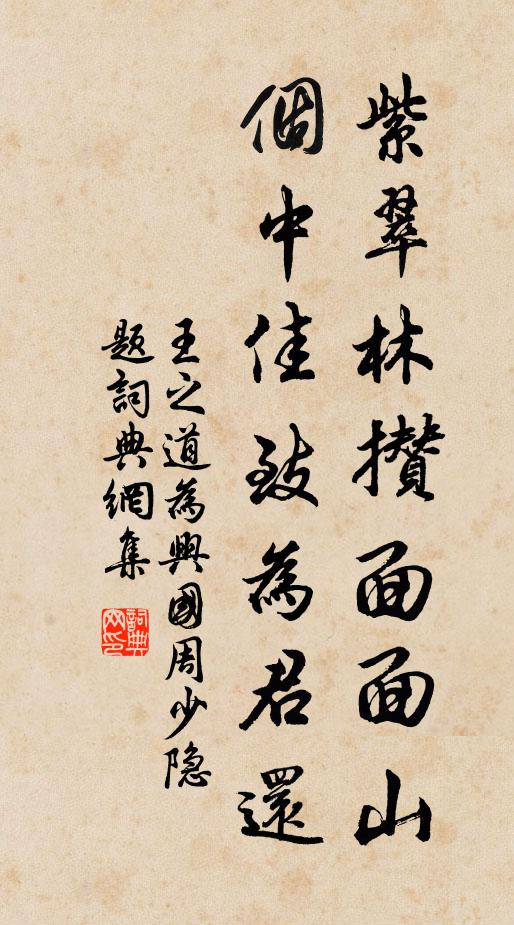 紫翠林攢面面山
個中佳致為君還
王之道為興國周少隐
題詞典網集
詞典网印